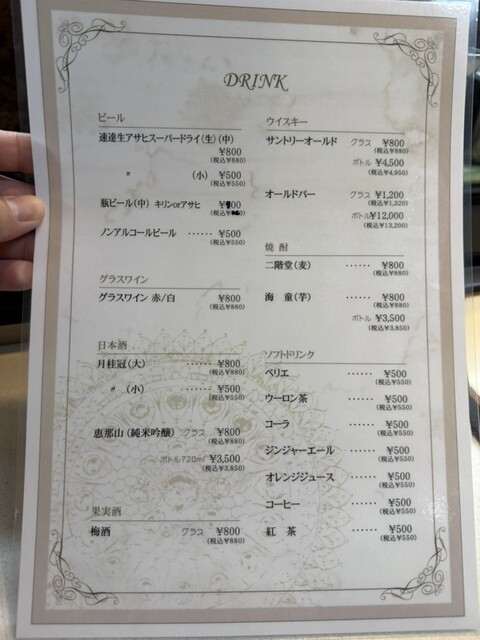 DRINK
ビール
速達生アサヒスーパードライ(生)(中)
¥800
(税込¥880)
〃 (小) ¥500
(税込¥550)
瓶ビール(中) キリンorアサヒ
ノンアルコールビール ······ ¥500
(税込¥550)
グラスワイン
グラスワイン 赤/白 ¥800
(税込¥880)
日本酒
月桂冠(大) ······ ¥800
(税込¥880)
〃 (小) ······ ¥500
(税込¥550)
恵那山(純米吟醸) グラス ¥800
(税込¥880)
ボトル720ml ¥3,500
(税込¥3,850)
果実酒
梅酒 グラス ¥800
(税込¥880)
ウイスキー
サントリーオールド グラス ¥800
(税込¥880)
ボトル ¥4,500
(税込¥4,950)
オールドパー グラス ¥1,200
(税込¥1,320)
ボトル¥12,000
(税込¥13,200)
焼 酎
二階堂(麦) ······ ¥800
(税込¥880)
海 童(芋) ······ ¥800
(税込¥880)
ボトル ¥3,500
(税込¥3,850)
ソフトドリンク
ペリエ ······ ¥500
(税込¥550)
ウーロン茶 ······ ¥500
(税込¥550)
コーラ ······ ¥500
(税込¥550)
ジンジャーエール ······ ¥500
(税込¥550)
オレンジジュース ······ ¥500
(税込¥550)
コーヒー ······ ¥500
(税込¥550)
紅 茶 ······ ¥500
(税込¥550)